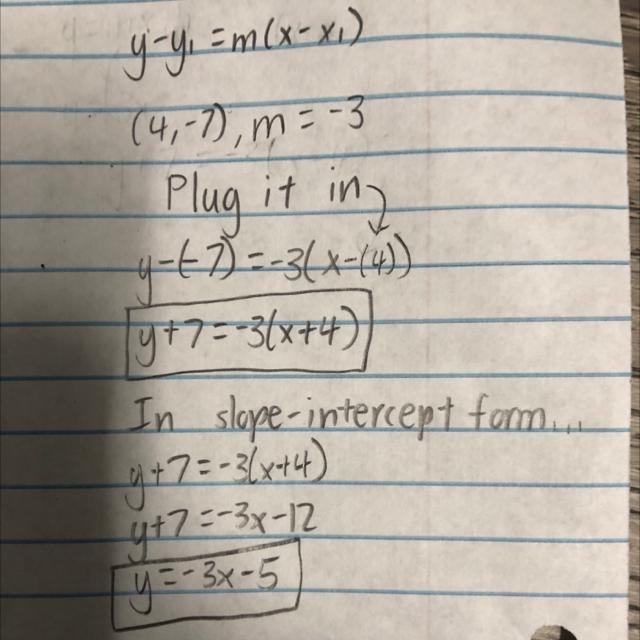 y-y₁=m(x-x₁)
(4,-7), m=-3
Plug it in
y-(-7)=-3(x-(4))
y+7=-3(x+4)
In slope-intercept form...
y+7=-3(x+4)
y+7=-3x-12
y=-3x-5